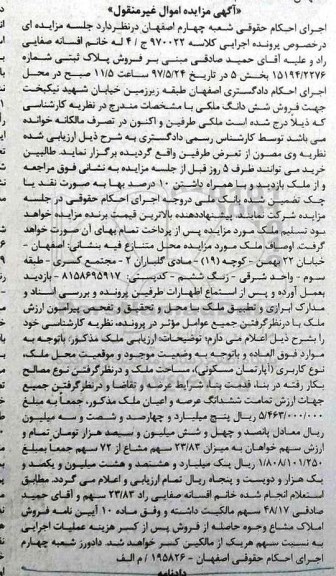 «آگهی مزایده اموال غیرمنقول»
اجرای احکام حقوقی شعبه چهارم اصفهان درنظردارد جلسه مزایده ای
درخصوص پرونده اجرایی کلاسه ۹۷۰۰۲۲ ج / ۴ له خانم افسانه صفایی
راد و علیه آقای حمید صادقی مبنی بر فروش پلاک ثبتی شماره
۱۵۱۹۴/۲۲۷۶ بخش ۵ در تاریخ ۹۷/۵/۲۴ ساعت ۱۱/۵ صبح در محل
اجرای احکام دادگستری اصفهان طبقه زیرزمین خیابان شهید نیکبخت
جهت فروش شش دانگ ملکی با مشخصات مندرج در نظریه کارشناسی
که ذیلا درج شده است ملکی طرفین و اکنون در تصرف مالکانه خوانده
می باشد توسط کارشناس رسمی دادگستری به شرح ذیل ارزیابی شده
نظریه وی مصون از تعرض طرفین واقع گردیده برگزار نماید. طالبین
خرید می توانند ظرف ۵ روز قبل از جلسه مزایده به نشانی فوق مراجعه
و از ملک بازدید و با همراه داشتن ۱۰ درصد بها به صورت نقد یا
چک تضمین شده بانک ملی دروجه اجرای احکام حقوقی در جلسه
مزایده شرکت نمایند. پیشنهاددهنده بالاترین قیمت برنده مزایده خواهد
بود تسلیم ملک مورد مزایده پس از پرداخت تمام بهای آن صورت خواهد
گرفت. اوصاف ملک مورد مزایده محل متنازع فیه بنشانی: اصفهان -
خیابان ۲۲ بهمن - کوچه (۱۹) - منادی گلیاران ۲ - مجتمع کسری - طبقه
سوم - واحد شرقی - زنگ ششم - کدپستی: ۸۱۵۸۶۹۵۹۱۷ - بازدید
بعمل آورده و پس از استماع اظهارات طرفین پرونده و بررسی اسناد و
مدارک ابرازی و تطبیق ملک با محل و تحقیق و تفحص پیرامون ارزش
ملک با درنظرگرفتن جمیع عوامل مؤثر در پرونده، نظریه کارشناسی خود
را بشرح ذیل اعلام می دارم؛ توضیحات: ارزیابی ملک مذکور: باتوجه به
موارد فوق العاده و باتوجه به وضعیت موجود و موقعیت محل ملک،
نوع کاربری (آپارتمان مسکونی)، مساحت ملک و درنظرگرفتن نوع مصالح
بکار رفته در بنا، قدمت بنا، شرایط عرضه و تقاضا و درنظرگرفتن جمیع
جهات ارزش تمامت ششدانگ عرصه و اعیان ملک مذکور، جمعاً به مبلغ
۵/۴۶۳/۰۰۰/۰۰۰ ریال پنج میلیارد و چهارصد و شصت و سه میلیون
ریال معادل پانصد و چهل و شش میلیون و سیصد هزار تومان تمام و
ارزش سهم خواهان به میزان ۲۳/۸۳ سهم مشاع از ۷۲ سهم جمعاً بمبلغ
۱/۸۰۸/۱۰۱/۲۵۰ ریال یک میلیارد و هشتصد و هشت میلیون و یکصد و
یک هزار و دویست و پنجاه ریال تمام ارزیابی و اعلام می گردد. مطابق
استعلام انجام شده خانم افسانه صفایی راد ۲۳/۸۳ سهم و آقای حمید
صادقی ۴۸/۱۷ سهم مالکیت داشته و وفق ماده ۱۰ آیین نامه فروش
املاک مشاع وجوه حاصله از فروش پس از کسر هزینه عملیات اجرایی
به نسبت سهم هریک از مالکین کسر خواهد شد. دادورز شعبه چهارم
اجرای احکام حقوقی اصفهان - ۱۹۵۸۲۶ / م الف
دادنامه